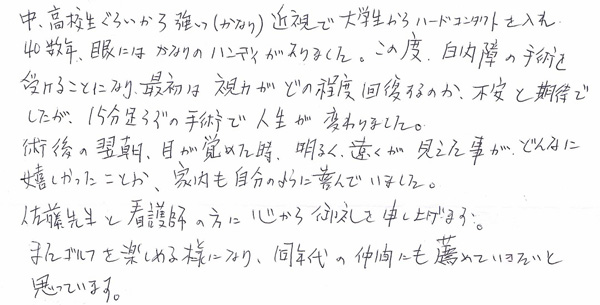 中、高校生ぐらいから強い(かなり)近視で大学生からハードコンタクトを入れ
40数年、眼にはかなりのハンディがありました。この度、白内障の手術を
受けることになり、最初は視力がどの程度回復するのか、不安と期待で
したが、15分足らずの手術で人生が変わりました。
術後の翌朝、目が覚めた時、明るく、遠くが見えた事が、どんなに
嬉しかったことか、家内も自分のように喜んでいました。
佐藤先生と看護師の方に心から御礼を申し上げます。
またゴルフを楽しめる様になり、同年代の仲間にも薦めていきたいと
思っています。